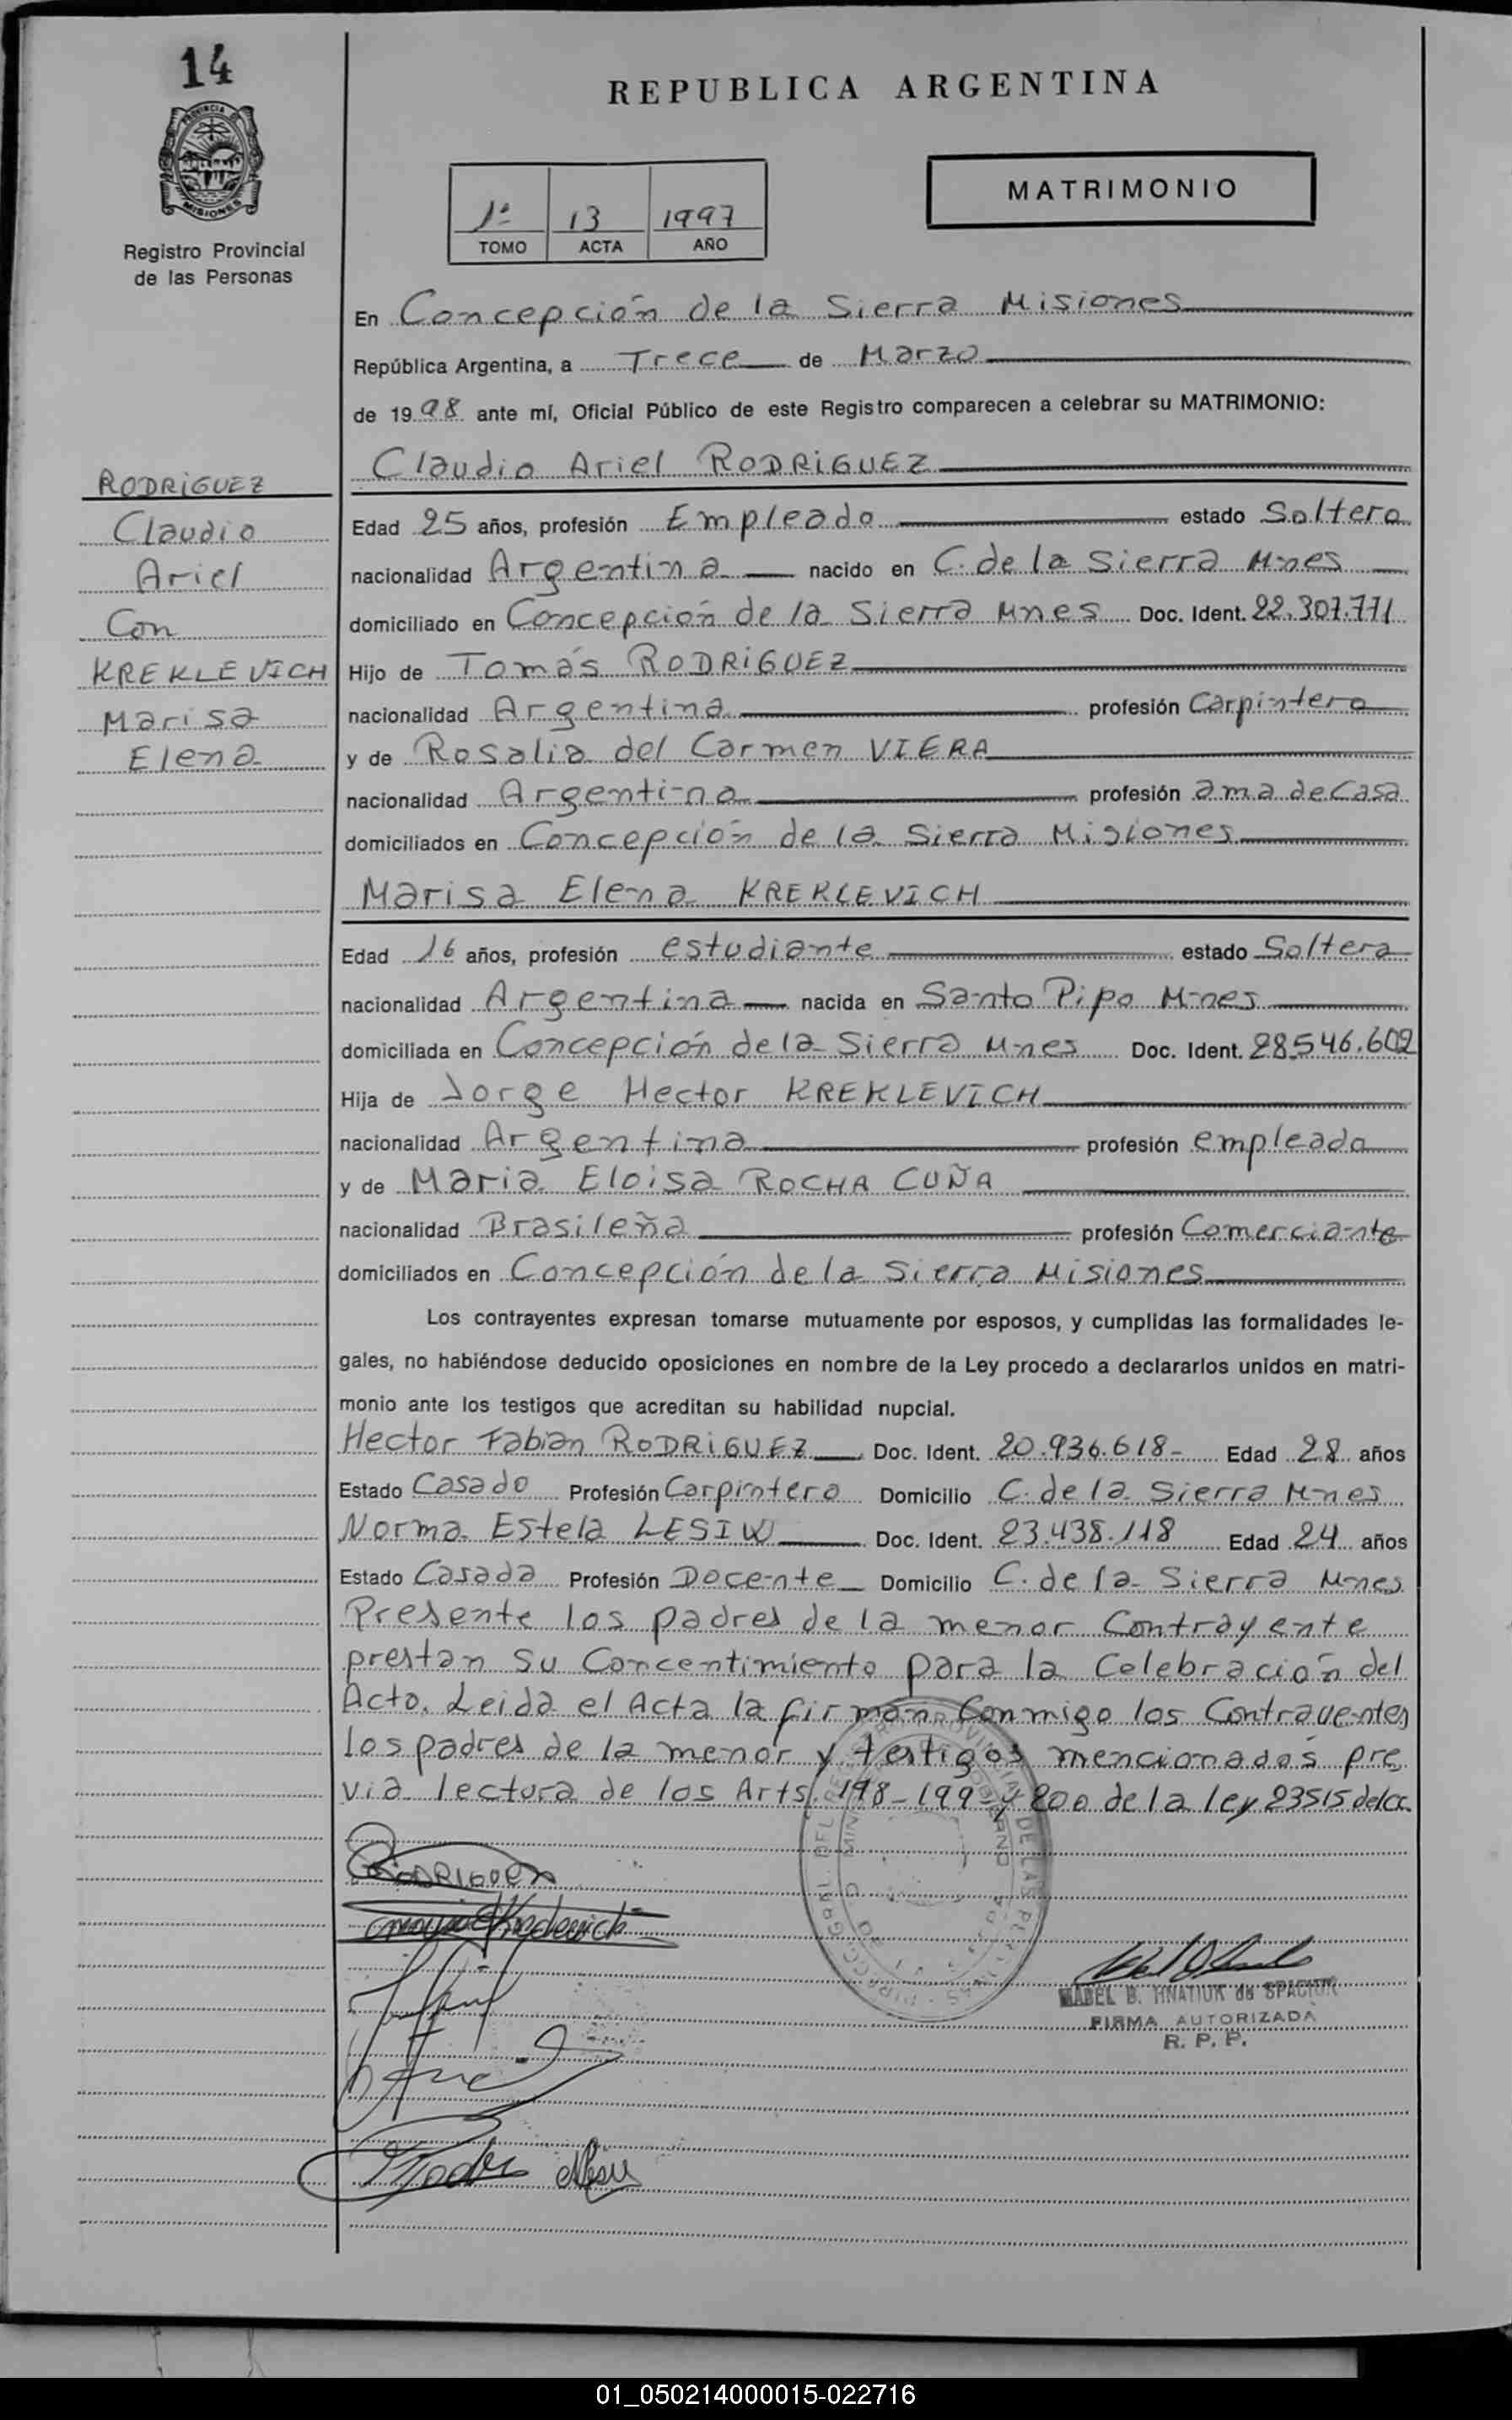 14
PROVINCIA DE
MISIONES
Registro Provincial
de las Personas
REPUBLICA ARGENTINA
1º 13 1997
TOMO ACTA AÑO
MATRIMONIO
En Concepción de la Sierra Misiones
República Argentina, a Trece de Marzo
de 1998 ante mí, Oficial Público de este Registro comparecen a celebrar su MATRIMONIO:
Claudio Ariel RODRiGUEZ
RODRiGUEZ
Claudio
Ariel
Con
KREKLEVICH
Marisa
Elena
Edad 25 años, profesión Empleado estado Soltero
nacionalidad Argentina nacido en C. de la Sierra Mnes
domiciliado en Concepción de la Sierra Mnes Doc. Ident. 22.307.771
Hijo de Tomás RODRiGUEZ
nacionalidad Argentina profesión Carpintero
y de Rosalia del Carmen VIERA
nacionalidad Argentina profesión ama de Casa
domiciliados en Concepción de la Sierra Misiones
Marisa Elena KREKLEVICH
Edad 16 años, profesión estudiante estado Soltera
nacionalidad Argentina nacida en Santo Pipo Mnes
domiciliada en Concepción de la Sierra Mnes Doc. Ident. 28.546.602
Hija de Jorge Hector KREKLEVICH
nacionalidad Argentina profesión empleado
y de Maria Eloisa ROCHA CUÑA
nacionalidad Brasileña profesión Comerciante
domiciliados en Concepción de la Sierra Misiones
Los contrayentes expresan tomarse mutuamente por esposos, y cumplidas las formalidades le-
gales, no habiéndose deducido oposiciones en nombre de la Ley procedo a declararlos unidos en matri-
monio ante los testigos que acreditan su habilidad nupcial.
Hector Fabian RODRiGUEZ Doc. Ident. 20.936.618- Edad 28 años
Estado Casado Profesión Carpintero Domicilio C. de la Sierra Mnes
Norma Estela LESIW Doc. Ident. 23.438.118 Edad 24 años
Estado Casada Profesión Docente Domicilio C. de la Sierra Mnes
Presente los padres de la menor Contrayente
prestan su Concentimiento para la Celebración del
Acto. Leida el Acta la firman Conmigo los Contrayentes
los padres de la menor y testigos mencionados pre
via lectura de los Arts. 198-199-y 200 de la ley 23515 del cc.
RODRIGUEZ
MABEL B. HNATIUK de SPACIUK
FIRMA AUTORIZADA
R. P. P.
01_050214000015-022716